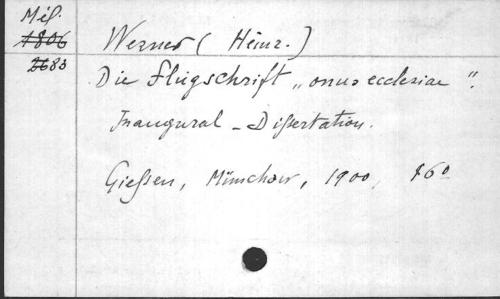 Mil.
1806 Werner (Heinr.)
2683 Die Flugschrift „onus ecclesiae".
Inaugural-Dissertation.
Giessen, Münchow, 1900, 8°